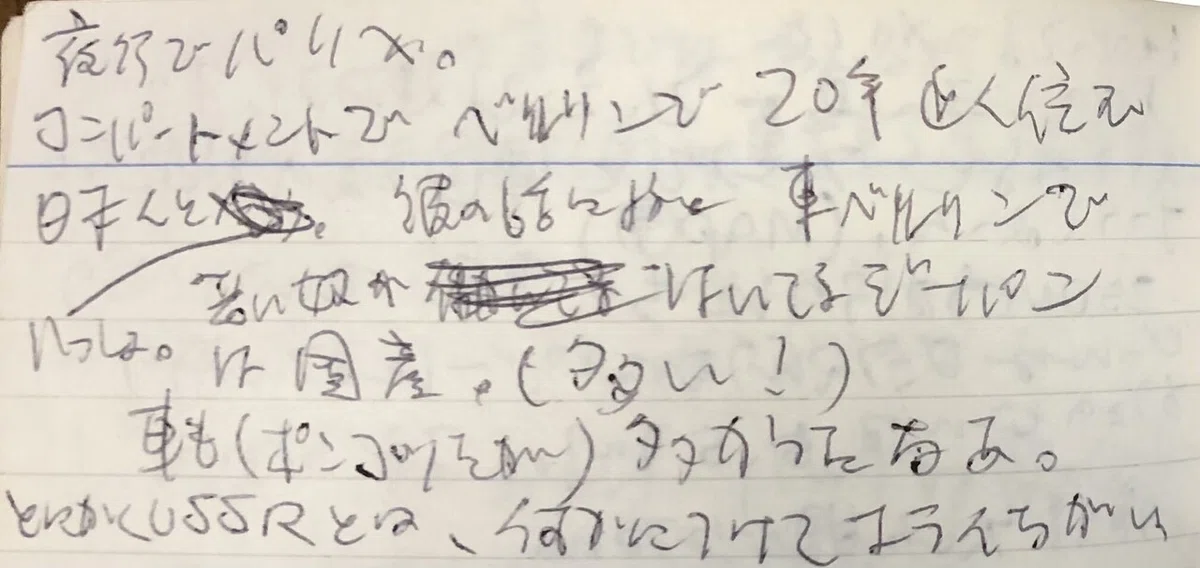 夜行でパリへ。
コンパートメントでベルリンで20年近く住む
日本人と 彼の話によると 東ベルリンで
若い奴が はいてるジーパン
いっしょ。は国産。(多い!)
車も(ポンコツだが)多かったなあ。
とにかくUSSRとは、何かにつけて大ちがい